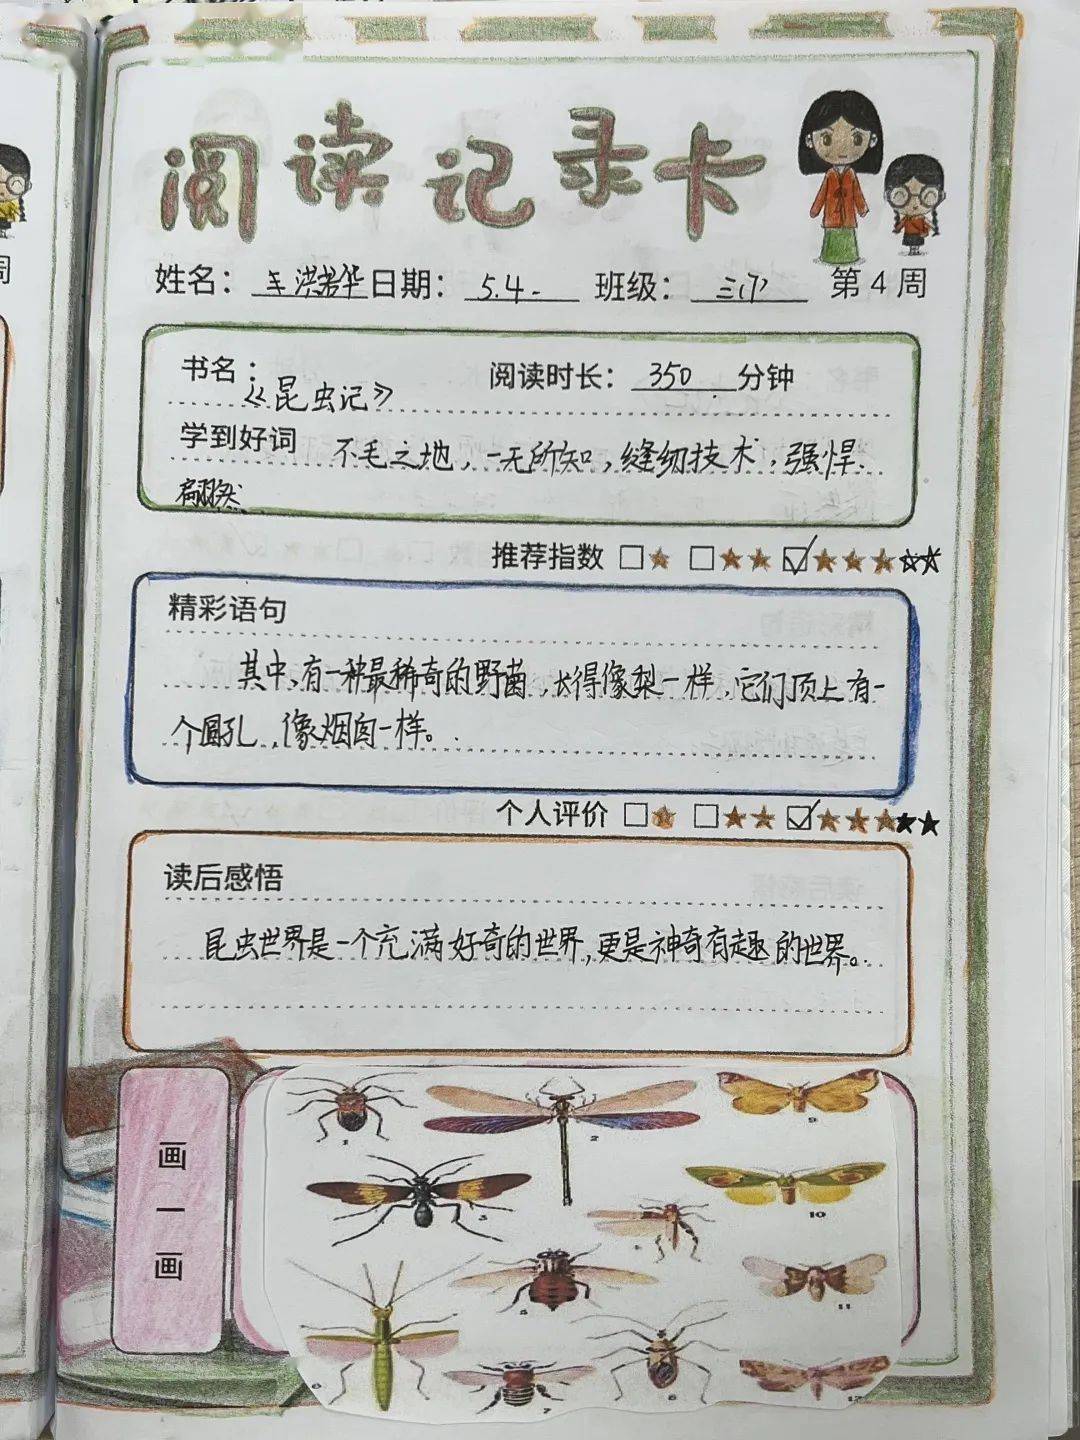 阅读记录卡
姓名： 日期：5.4 班级： 第4周
书名：《昆虫记》 阅读时长：350 分钟
学到好词 不毛之地，一无所知，缝纫技术，强悍、
翩然
推荐指数 □★ □★★ ☑★★★☆☆
精彩语句
其中，有一种最稀奇的野菌，长得像梨一样，它们顶上有一
个圆孔，像烟囱一样。
个人评价 □★ □★★ ☑★★★★★
读后感悟
昆虫世界是一个充满好奇的世界，更是神奇有趣的世界。
画一画
1
2
9
3
10
5
11
6
7
8
12